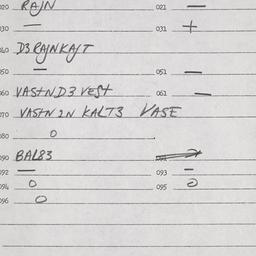 020 RAJN 021 —
030 — 031 +
040 D3 RAJNKAJT
050 — 051 —
060 VASTND3 VEST 061 —
070 VASTN 2N KALT3 VASE
080 O
090 BAL83
092 — 093 –
094 O 095 O
096 O